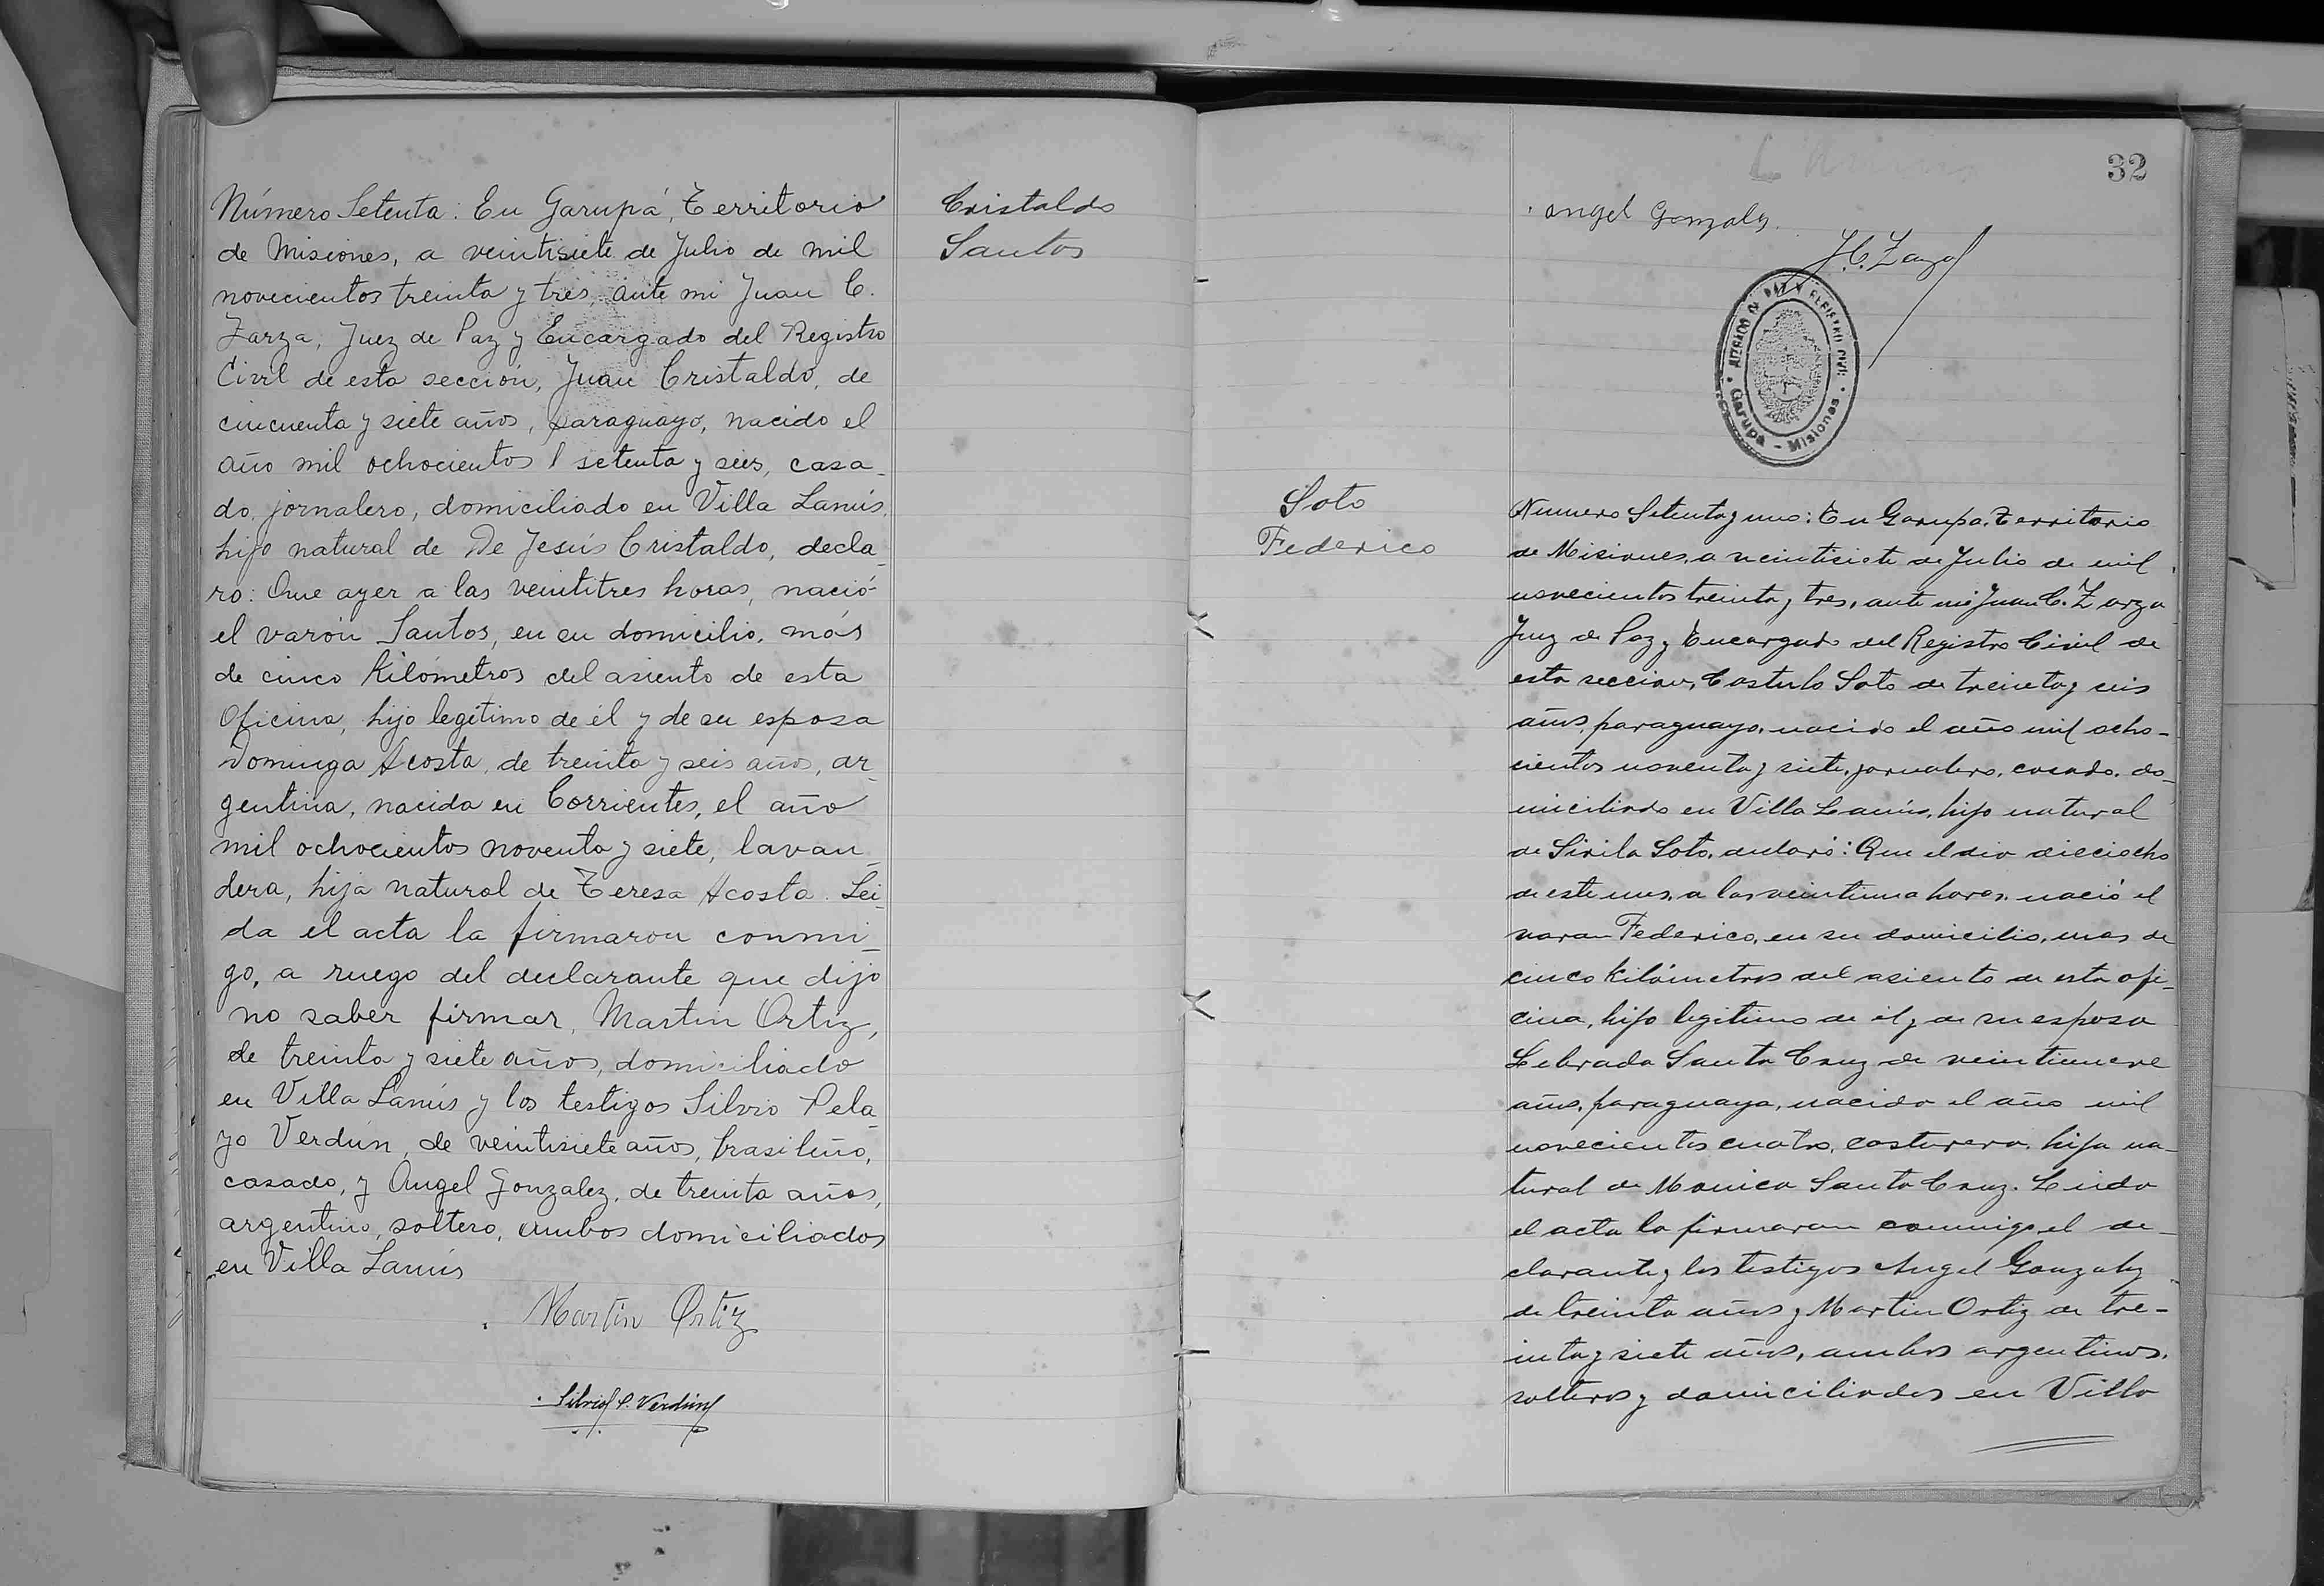 Número Setenta: En Garupá, Territorio
de Misiones, a veintisiete de Julio de mil
novecientos treinta y tres, ante mi Juan C.
Zarza, Juez de Paz y Encargado del Registro
Civil de esta sección, Juan Cristaldo, de
cincuenta y siete años, paraguayo, nacido el
año mil ochocientos setenta y seis, casa-
do, jornalero, domiciliado en Villa Lanús,
hijo natural de De Jesús Cristaldo, decla-
ró: Que ayer a las veintitres horas, nació
el varón Santos, en su domicilio, más
de cinco kilómetros del asiento de esta
Oficina, hijo legítimo de él y de su esposa
Dominga Acosta, de treinta y seis años, ar-
gentina, nacida en Corrientes, el año
mil ochocientos noventa y siete, lavan-
dera, hija natural de Teresa Acosta. Lei-
da el acta la firmaron conmi-
go, a ruego del declarante que dijo
no saber firmar, Martin Ortiz,
de treinta y siete años, domiciliado
en Villa Lanús y los testigos Silvio Pela-
yo Verdún, de veintisiete años, brasileño,
casado, y Angel Gonzalez, de treinta años,
argentino, soltero, ambos domiciliados
en Villa Lanús
Martin Ortiz
Silvio P. Verdún
Cristaldo
Santos
32
Angel Gonzalez
J. C. Zarza
JUZGADO DE PAZ Y REGISTRO CIVIL
Garupá - Misiones
Soto
Federico
Numero Setenta y uno: En Garupa, Territorio
de Misiones, a veintisiete de Julio de mil
novecientos treinta y tres, ante mi Juan C. Zarza
Juez de Paz y Encargado del Registro Civil de
esta seccion, Castulo Soto de treinta y seis
años, paraguayo, nacido el año mil ocho-
cientos noventa y siete, jornalero, casado, do-
miciliado en Villa Lanús, hijo natural
de Sirila Soto, declaró: Que el dia dieciocho
de este mes, a las veintiuna horas, nació el
varon Federico, en su domicilio, mas de
cinco kilómetros del asiento de esta ofi-
cina, hijo legitimo de él y de su esposa
Librada Santa Cruz de veintinueve
años, paraguaya, nacida el año mil
novecientos cuatro, costurera, hija na-
tural de Monica Santa Cruz. Leida
el acta la firmaron conmigo el de-
clarante y los testigos Angel Gonzalez
de treinta años y Martin Ortiz de tre-
inta y siete años, ambos argentinos,
solteros y domiciliados en Villa